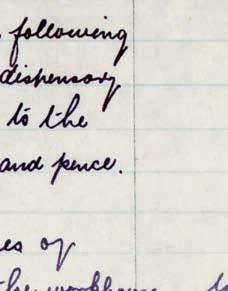 following
dispensary
to the
and pence.
es of
the workhouse